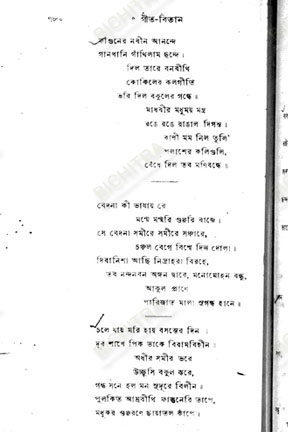 ৭৮০ গীত-বিতান
ফাগুনের নবীন আনন্দে
গানখানি গাঁথিলাম ছন্দে।
দিল তারে বনবীথি
কোকিলের কলগীতি
ভরি দিল বকুলের গন্ধে॥
মাধবীর মধুময় মন্ত্র
রঙে রঙে রাঙাল দিগন্ত।
বাণী মম নিল তুলি'
পলাশের কলিগুলি,
বেঁধে দিল তব মণিবন্ধে॥
বেদনা কী ভাষায় রে
মর্মে মর্মরি গুঞ্জরি বাজে।
সে বেদনা সমীরে সমীরে সঞ্চারে,
চঞ্চল বেগে বিশ্বে দিল দোলা।
দিবানিশা আছি নিদ্রাহরা বিরহে,
তব নন্দনবন অঙ্গন দ্বারে, মনোমোহন বন্ধু,
আকুল প্রাণে
পারিজাত মালা সুগন্ধ হানে॥
চলে যায় মরি হায় বসন্তের দিন।
দূর শাখে পিক ডাকে বিরামবিহীন।
অধীর সমীর ভরে
উচ্ছ্বসি বকুল ঝরে,
গন্ধ সনে হল মন সুদূরে বিলীন॥
পুলকিত আম্রবীথি ফাল্গুনেরি তাপে,
মধুকর গুঞ্জরণে ছায়াতল কাঁপে।
BICHITRA